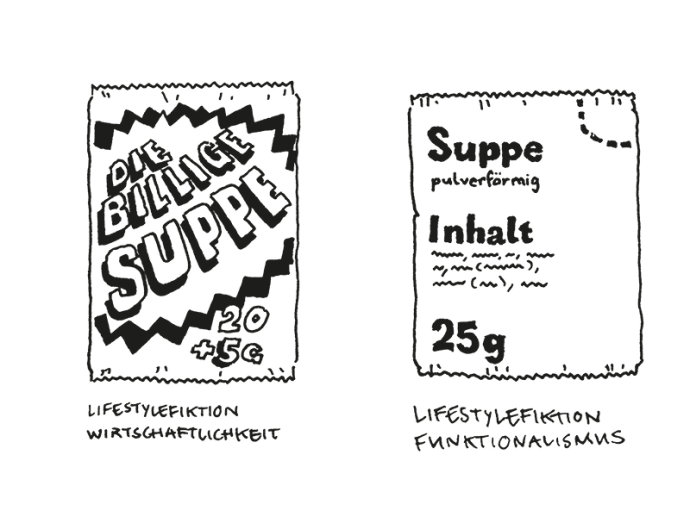 DIE
BILLIGE
SUPPE
20
+5G
LIFESTYLEFIKTION
WIRTSCHAFTLICHKEIT
Suppe
pulverförmig
Inhalt
25g
LIFESTYLEFIKTION
FUNKTIONALISMUS